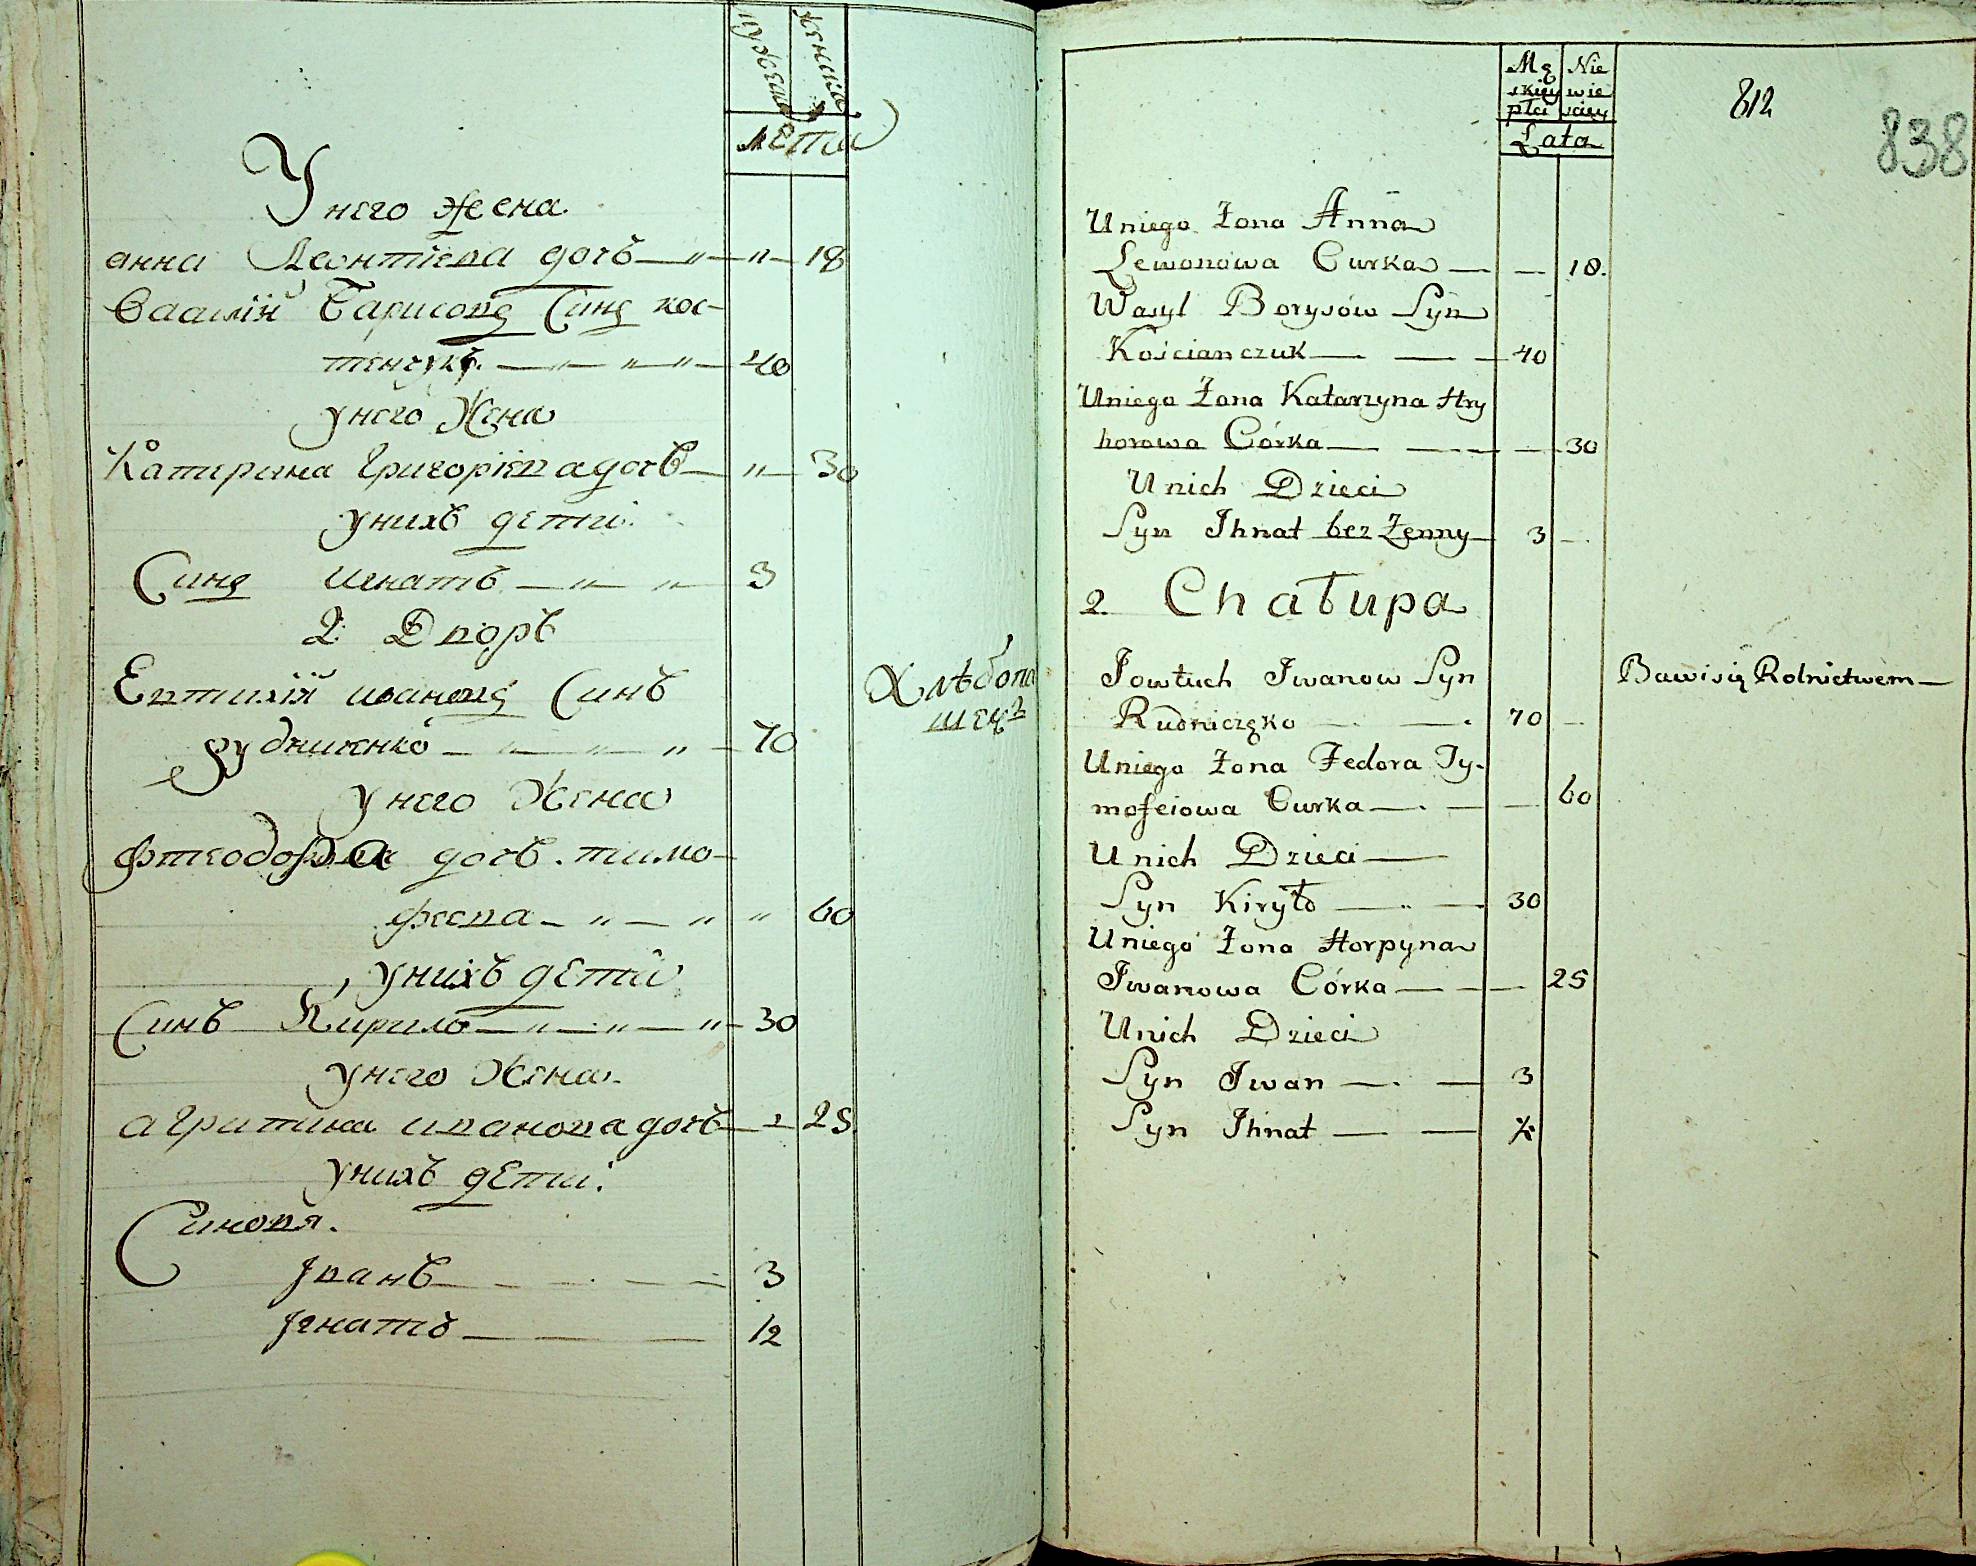 мужеска
женска
лети
У него жена
анна Леонтиева дочъ — „ — „ — 18
Василій Барисовъ Синъ кос-
тенчукъ. — „ „ „ — 40
у него Жена
Катирина Григоріевадочъ — „ — 30
унихъ дети.
Синъ игнатъ — „ — „ 3
2 Дворъ
Евтихій ивановъ Синъ
рудниченко — „ — „ „ — 70
Хлѣбопа
шецъ
у него Жена
Фтеодора дочъ. тимо-
феева — „ — „ „ 60
, унихъ дети
Синъ Кирило — „ — „ — „ — 30
у него Жена.
агрипина ивановадочъ — „ — 25
унихъ дети.
Синовя.
Іванъ — — — — 3
Ігнатъ — — — 1/2
Mę Nie
skiey wie
płci sciey
Lata
812
838
Uniego Żona Anna
Lewonowa Curka — — 18.
Wasyl Borysów Syn
Kościanczuk — — — 40
Uniego Żona Katarzyna Hry
horowa Córka — — — — 30
Unich Dzieci
Syn Ihnat bez Żenny — 3 —
2. Chałupa
Jowtuch Iwanow Syn
Rudniczęko — — 70 —
Bawi się Rolnictwem —
Uniego Żona Fedora Ty-
mofeiowa Curka — . — — 60
Unich Dzieci —
Syn Kiryło — . — 30
Uniego Żona Horpyna
Iwanowa Córka — — — 25
Unich Dzieci
Syn Iwan — . — 3
Syn Ihnat — — 1/2